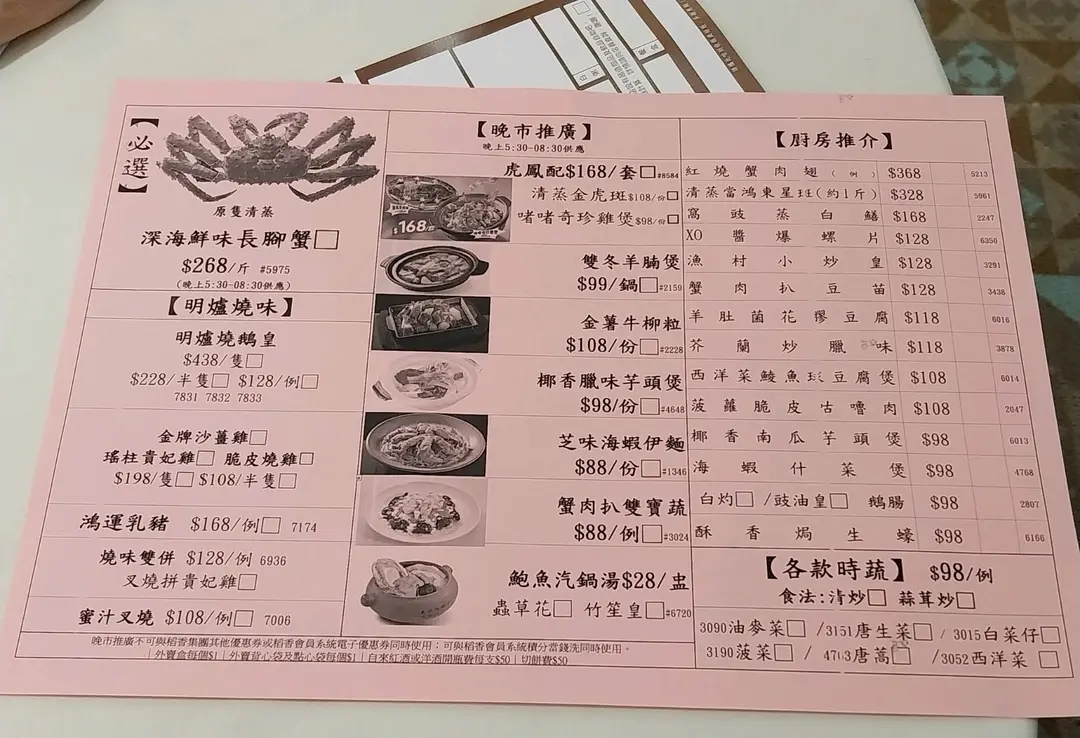 【必選】
原隻清蒸
深海鮮味長腳蟹□
$268/斤 #5975
(晚上5:30-08:30供應)
【明爐燒味】
明爐燒鵝皇
$438/隻□
$228/半隻□ $128/例□
7831 7832 7833
金牌沙薑雞□
瑤柱貴妃雞□ 脆皮燒雞□
$198/隻□ $108/半隻□
鴻運乳豬 $168/例□ 7174
燒味雙併 $128/例 6936
叉燒拼貴妃雞□
蜜汁叉燒 $108/例□ 7006
【晚市推廣】
晚上5:30-08:30供應
虎鳳配$168/套□#8584
清蒸金虎斑$108/份□
啫啫奇珍雞煲$98/份□
$168/套
雙冬羊腩煲
$99/鍋□#2159
金薯牛柳粒
$108/份□#2228
椰香臘味芋頭煲
$98/份□#4648
芝味海蝦伊麵
$88/份□#1346
蟹肉扒雙寶蔬
$88/例□#3024
鮑魚汽鍋湯$28/盅
蟲草花□ 竹笙皇□#6720
【厨房推介】
紅燒蟹肉翅(例) $368 5213
清蒸當鴻東星斑(約1斤) $328 5961
窩豉蒸白鱔 $168 2247
XO醬爆螺片 $128 6350
漁村小炒皇 $128 3291
蟹肉扒豆苗 $128 3438
羊肚菌花膠豆腐 $118 6016
芥蘭炒臘味 $118 3878
西洋菜鯪魚崧豆腐煲 $108 6014
菠蘿脆皮咕嚕肉 $108 2047
椰香南瓜芋頭煲 $98 6013
海蝦什菜煲 $98 4768
白灼□/豉油皇□ 鵝腸 $98 2807
酥香焗生蠔 $98 6166
【各款時蔬】 $98/例
食法:清炒□ 蒜茸炒□
3090油麥菜□ /3151唐生菜□ / 3015白菜仔□
3190菠菜□ / 4763唐蒿□ /3052西洋菜 □
晚市推廣不可與稻香集團其他優惠券或稻香會員系統電子優惠券同時使用；可與稻香會員系統積分當錢洗同時使用。
|外賣盒每個$1| 外賣背心袋及點心袋每個$1 |自來紅酒或洋酒開瓶費每支$50| 切餅費$50